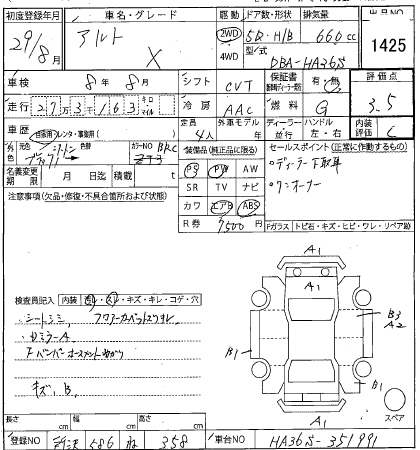 初度登録年月 車名・グレード 駆動 ドア数・形状 排気量 出品NO
29/8月 アルト X 2WD 4WD 5D・H/B 660cc 1425
型式 DBA-HA36S
車検 8年8月 シフト CVT 保証書 有・無 評価点 3.5
走行 キロ マイル 冷房 AAC 燃料 G
車歴 自家用・レンタ・事業用( ) 定員 4人 外車モデル 年 ディーラー・並行 ハンドル 左・右 内装評価 C
外色 元色 色替 カラーNO
装備品(純正品に限る) セールスポイント(正常に作動するもの)
PS PW AW ・ディーラー下取車
名義変更期限 月 日迄 積載 t SR TV ナビ ・ワンオーナー
注意事項(欠品・修復・不具合箇所および状態) カワ エアB ABS
R券 7500円 Fガラス・トビ石・キズ・ヒビ・ワレ・リペア跡
A1
A1
検査員記入 内装 汚レ・スレ・キズ・キレ・コゲ・穴
・シートシミ フロアーカーペットスリキレ
・ミラーA
B3
A2
B1
キズ、B、
B1
A1
A1
スペア
長さ cm 幅 cm 高さ cm
登録NO 所沢 586 ね 358 車台NO HA36S-351991